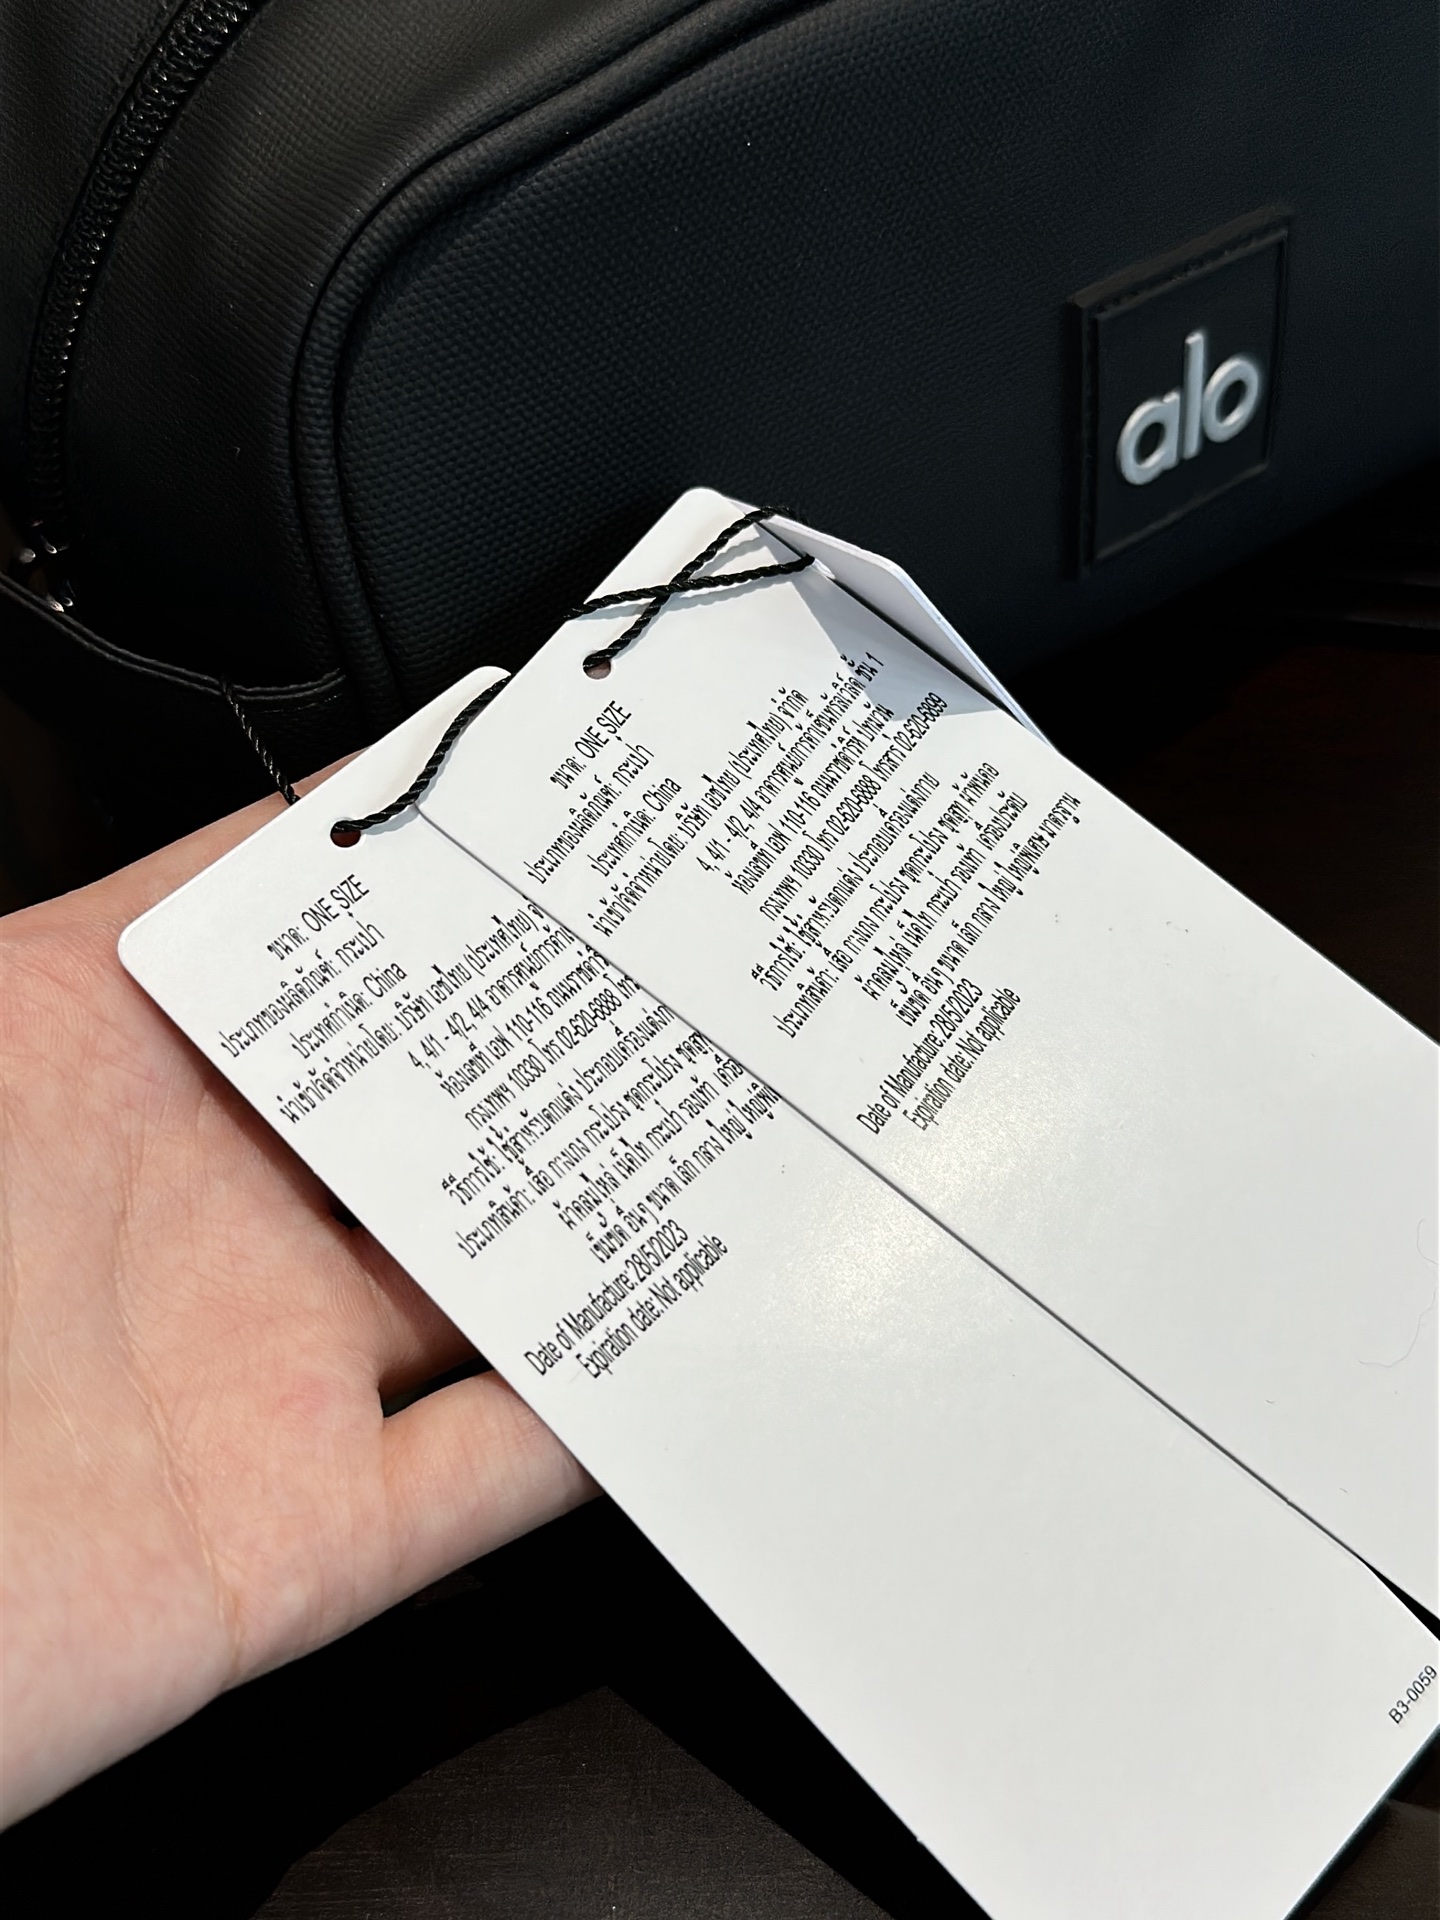 alo
ขนาด: ONE SIZE
ประเภทของผลิตภัณฑ์: กระเป๋า
ประเทศกำเนิด: China
นำเข้า/จัดจำหน่ายโดย: บริษัท เอชไทย (ประเทศไทย) จำกัด
4, 4/1 - 4/2, 4/4 อาคารศูนย์การค้าเซ็นทรัลเวิลด์ ชั้น 1
ห้องเลขที่ เอฟ 110-116 ถนนราชดำริ ปทุมวัน
กรุงเทพฯ 10330 โทร 02-620-6888 โทรสาร 02-620-6899
วิธีการใช้: ใช้สำหรับตกแต่ง ประกอบเครื่องแต่งกาย
ประเภทสินค้า: เสื้อ กางเกง กระโปรง ชุดกระโปรง ชุดสูท ผ้าพันคอ
ผ้าคลุมไหล่ เนคไท กระเป๋า รองเท้า เครื่องประดับ
เข็มขัด อื่นๆ ขนาด เล็ก กลาง ใหญ่ ใหญ่พิเศษ มาตรฐาน
Date of Manufacture: 28/5/2023
Expiration date: Not applicable
ขนาด: ONE SIZE
ประเภทของผลิตภัณฑ์: กระเป๋า
ประเทศกำเนิด: China
นำเข้า/จัดจำหน่ายโดย: บริษัท เอชไทย (ประเทศไทย)
4, 4/1 - 4/2, 4/4 อาคารศูนย์การค้า
ห้องเลขที่ เอฟ 110-116 ถนนราชดำริ
กรุงเทพฯ 10330 โทร 02-620-6888 โทร
วิธีการใช้: ใช้สำหรับตกแต่ง ประกอบเครื่องแต่งก
ประเภทสินค้า: เสื้อ กางเกง กระโปรง ชุดกระโปรง ชุดสูท
ผ้าคลุมไหล่ เนคไท กระเป๋า รองเท้า เครื่อ
เข็มขัด อื่นๆ ขนาด เล็ก กลาง ใหญ่ ใหญ่พิเ
Date of Manufacture: 28/5/2023
Expiration date: Not applicable
B3-0059